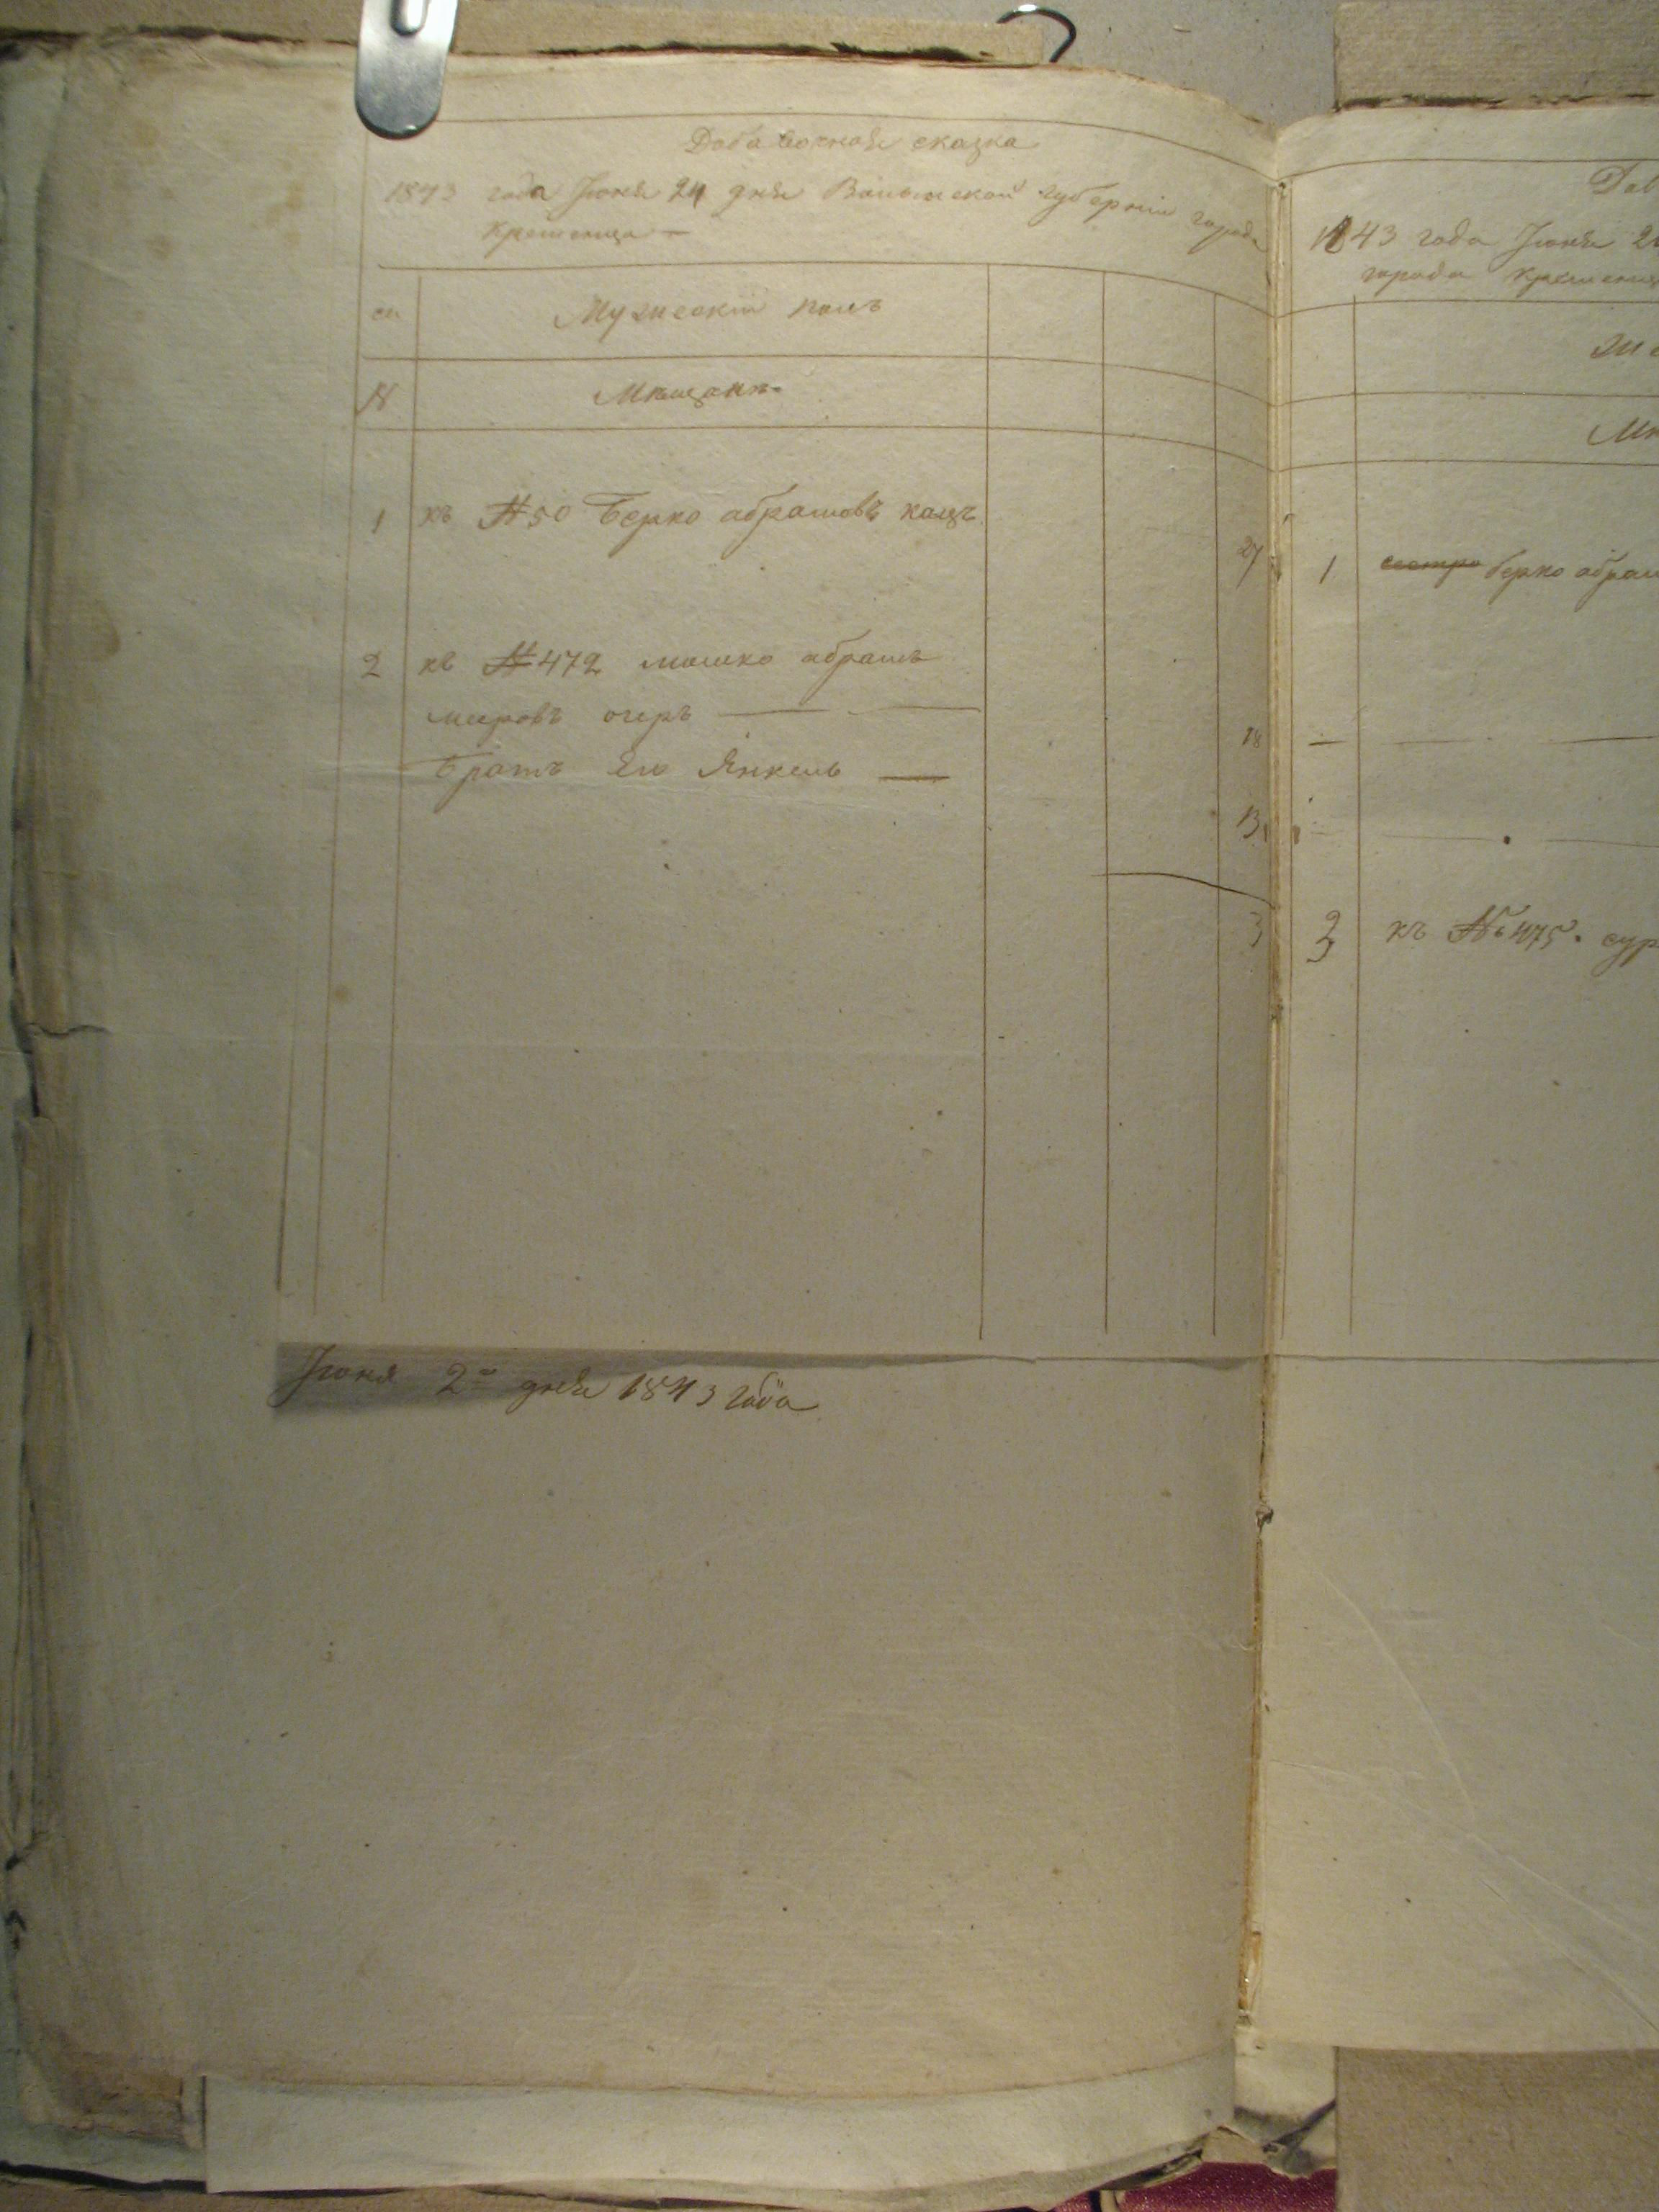 Добавочная сказка
1843 года Июня 24 дня Волынской губернии города
Кременца —
Мужеский полъ
№
Мѣщанъ
1 къ № 50 Берко абрамовъ кацъ
27
2 къ № 472 мошко абрамъ
мееровъ огеръ — —
18
братъ его Янкель —
13
3
Июня 2го дня 1843 года
Доб
1843 года Июня 2
города Кременц
1 сестра берко абрам
2
3 къ № 475. сур